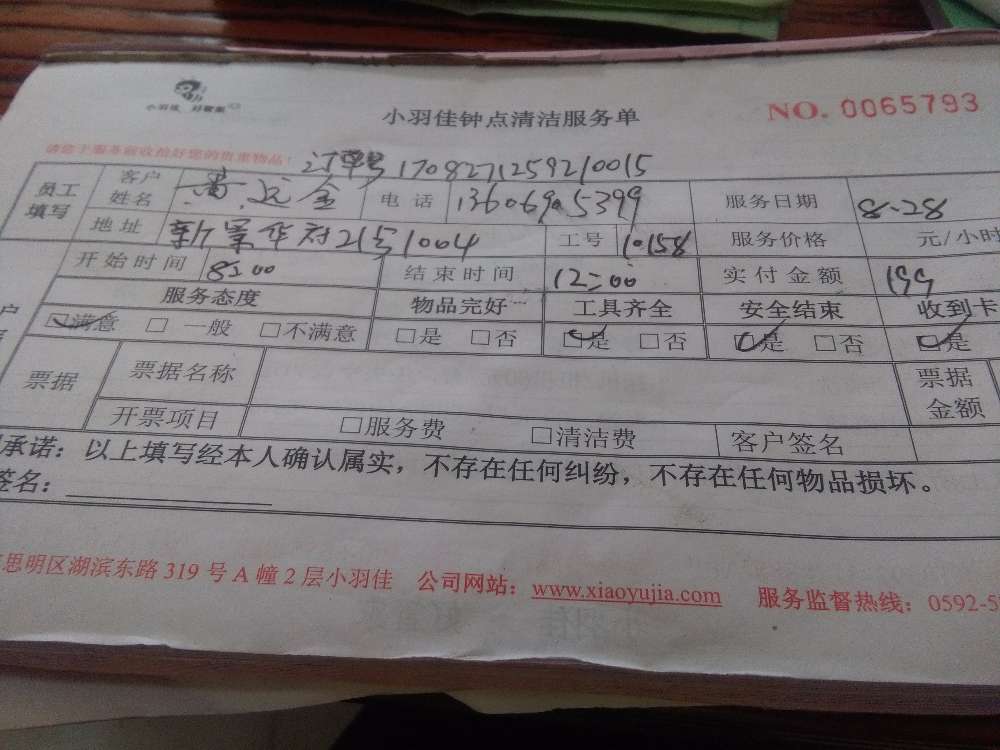 小羽佳 好管家
小羽佳钟点清洁服务单 NO. 0065793
请您于服务前收拾好您的贵重物品! 订单号 1708271259210015
员工填写 客户姓名 黄远金 电话 13606905399 服务日期 8-28
地址 新景华府21号1004 工号 10158 服务价格 元/小时
开始时间 8:00 结束时间 12:00 实付金额 199
服务态度 物品完好 工具齐全 安全结束 收到卡
☑满意 □ 一般 □不满意 □是 □否 ☑是 □否 ☑是 □否 ☑是
票据 票据名称 票据金额
开票项目 □服务费 □清洁费 客户签名
承诺：以上填写经本人确认属实，不存在任何纠纷，不存在任何物品损坏。
签名：
思明区湖滨东路 319 号 A 幢 2 层小羽佳 公司网站：www.xiaoyujia.com 服务监督热线：0592-5